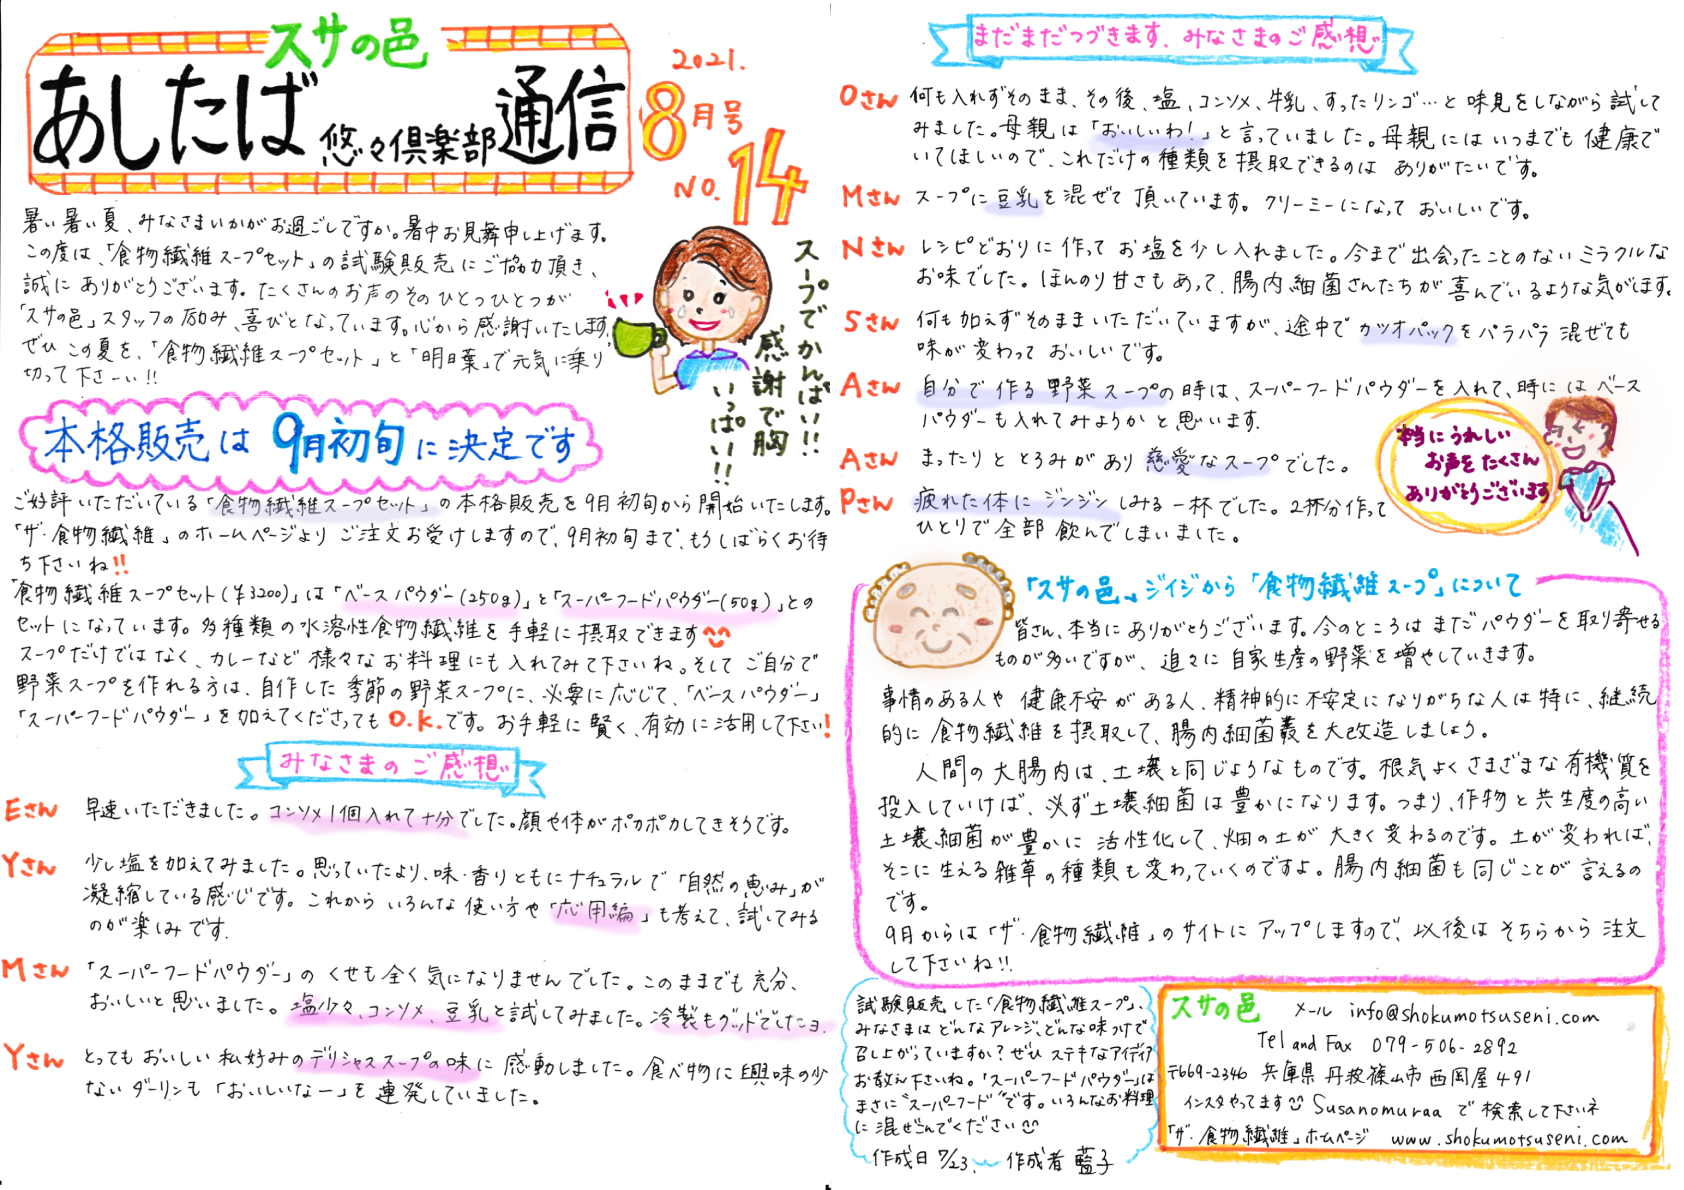 スサの邑
あしたば 悠々倶楽部 通信
2021.
8月号
NO. 14
暑い暑い夏、みなさまいかがお過ごしですか。暑中お見舞申し上げます。
この度は、「食物繊維スープセット」の試験販売にご協力頂き、
誠にありがとうございます。たくさんのお声のそのひとつひとつが
「スサの邑」スタッフの励み、喜びとなっています。心から感謝いたします。
ぜひこの夏を、「食物繊維スープセット」と「明日葉」で元気に乗り
切って下さーい!!
スープでかんぱい!!
感謝で胸
いっぱーい!!
本格販売は 9月初旬に決定です
ご好評いただいている「食物繊維スープセット」の本格販売を9月初旬から開始いたします。
「ザ・食物繊維」のホームページよりご注文お受けしますので、9月初旬まで、もうしばらくお待
ち下さいね!!
「食物繊維スープセット(¥3200)」は「ベースパウダー(250g)」と「スーパーフードパウダー(50g)」との
セットになっています。多種類の水溶性食物繊維を手軽に摂取できます
スープだけではなく、カレーなど様々なお料理にも入れてみて下さいね。そしてご自分で
野菜スープを作れる方は、自作した季節の野菜スープに、必要に応じて、「ベースパウダー」
「スーパーフードパウダー」を加えてくださってもO.K.です。お手軽に賢く、有効に活用して下さい!
みなさまのご感想
Eさん 早速いただきました。コンソメ1個入れて十分でした。顔や体がポカポカしてきそうです。
Yさん 少し塩を加えてみました。思っていたより、味・香りともにナチュラルで「自然の恵み」が
凝縮している感じです。これからいろんな使い方や「応用編」も考えて、試してみる
のが楽しみです。
Mさん 「スーパーフードパウダー」のくせも全く気になりませんでした。このままでも充分、
おいしいと思いました。塩少々、コンソメ、豆乳と試してみました。冷製もグッドでしたョ。
Yさん とってもおいしい私好みのデリシャススープの味に感動しました。食べ物に興味の少
ないダーリンも「おいしいなー」を連発していました。
まだまだつづきます、みなさまのご感想
Oさん 何も入れずそのまま、その後、塩、コンソメ、牛乳、すったリンゴ…と味見をしながら試して
みました。母親は「おいしいわ!」と言っていました。母親にはいつまでも健康で
いてほしいので、これだけの種類を摂取できるのはありがたいです。
Mさん スープに豆乳を混ぜて頂いています。クリーミーになっておいしいです。
Nさん レシピどおりに作ってお塩を少し入れました。今まで出会ったことのないミラクルな
お味でした。ほんのり甘さもあって、腸内細菌さんたちが喜んでいるような気がします。
Sさん 何も加えずそのままいただいていますが、途中でカツオパックをパラパラ混ぜても
味が変わっておいしいです。
Aさん 自分で作る野菜スープの時は、スーパーフードパウダーを入れて、時にはベース
パウダーも入れてみようかと思います。
Aさん まったりととろみがあり慈愛なスープでした。
Pさん 疲れた体にジンジンしみる一杯でした。2杯分作って
ひとりで全部飲んでしまいました。
本当にうれしい
お声をたくさん
ありがとうございます
「スサの邑」、ジイジから「食物繊維スープ」について
皆さん、本当にありがとうございます。今のところはまだパウダーを取り寄せる
ものが多いですが、追々に自家生産の野菜を増やしていきます。
事情のある人や健康不安がある人、精神的に不安定になりがちな人は特に、継続
的に食物繊維を摂取して、腸内細菌叢を大改造しましょう。
人間の大腸内は、土壌と同じようなものです。根気よくさまざまな有機質を
投入していけば、必ず土壌細菌は豊かになります。つまり、作物と共生度の高い
土壌細菌が豊かに活性化して、畑の土が大きく変わるのです。土が変われば、
そこに生える雑草の種類も変わっていくのですよ。腸内細菌も同じことが言えるの
です。
9月からは「ザ・食物繊維」のサイトにアップしますので、以後はそちらから注文
して下さいね!!
試験販売した「食物繊維スープ」、
みなさまはどんなアレンジ、どんな味つけで
召し上がっていますか?ぜひステキなアイディア
お教え下さいね。「スーパーフードパウダー」は
まさに“スーパーフード”です。いろんなお料理
に混ぜこんでください
作成日 7/23 作成者 藍子
スサの邑 メール info@shokumotsuseni.com
Tel and Fax 079-506-2892
〒669-2346 兵庫県丹波篠山市西岡屋491
インスタやってます Susanomuraa で検索して下さいネ
「ザ・食物繊維」ホームページ www.shokumotsuseni.com